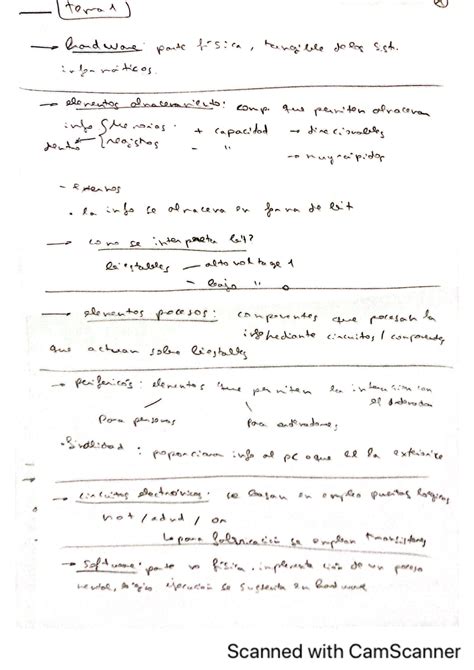 tema 1
→ hardware: parte física, tangible de los sist.
informáticos.
→ elementos almacenamiento: comp. que permiten almacenar
info { memorias: + capacidad → direccionables
dentro registros - " → muy rápidos
- Externos
• la info se almacena en forma de bit
→ como se interpreta bit?
biestables - alto voltage 1
- bajo " 0
→ elementos procesos: componentes que procesan la
info mediante circuitos / componentes
que actuan sobre biestables
→ periféricos: elementos que permiten la interacción con
el ordenador
Para personas Para ordenadores
• finalidad: proporcionar info al pc o que el la
→ circuitos electrónicos: se basan en emplea puertas lógicas
not / and / or
para fabricación se emplean transistores
→ software: parte no física. implementación de un proceso
ejecución se sustenta en hardware
Scanned with CamScanner